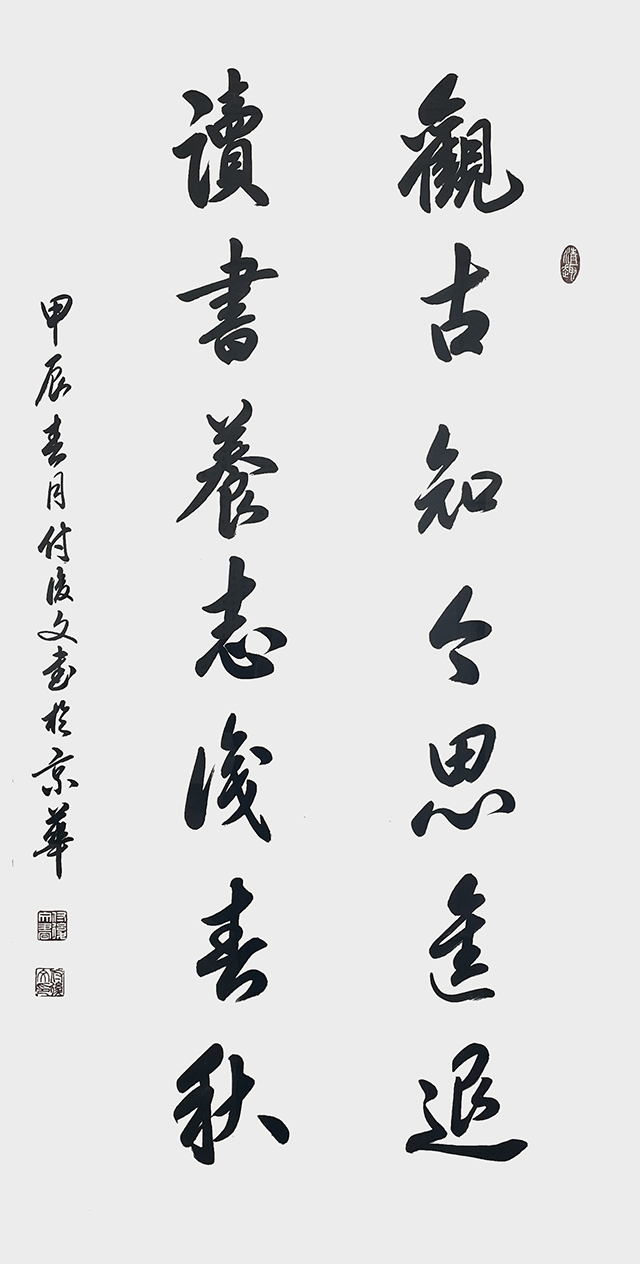 觀古知今思進退
讀書養志識春秋
甲辰春月付俊文書於京華